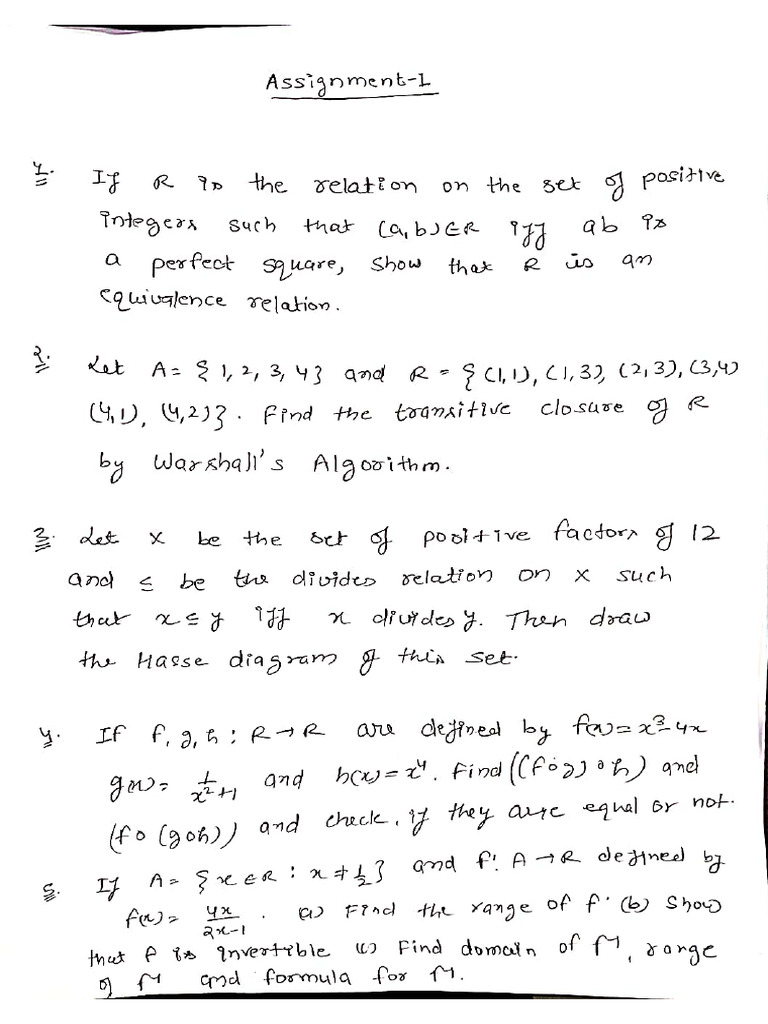 Assignment-1
1. If R is the relation on the set of positive
integers such that (a,b)∈R iff ab is
a perfect square, show that R is an
equivalence relation.
2. Let A = {1, 2, 3, 4} and R = {(1,1), (1,3), (2,3), (3,4)
(4,1), (4,2)}. Find the transitive closure of R
by Warshall's Algorithm.
3. Let X be the set of positive factors of 12
and ≤ be the divides relation on X such
that x≤y iff x divides y. Then draw
the Hasse diagram of this set.
4. If f, g, h : R→R are defined by f(x)=x³-4x
g(x)= 1/(x²+1) and h(x)=x⁴. Find ((fog)oh) and
(fo(goh)) and check, if they are equal or not.
5. If A = {x∈R : x≠1/2} and f: A→R defined by
f(x)= 4x/(2x-1). (a) Find the range of f. (b) Show
that f is invertible (c) Find domain of f⁻¹, range
of f⁻¹ and formula for f⁻¹.